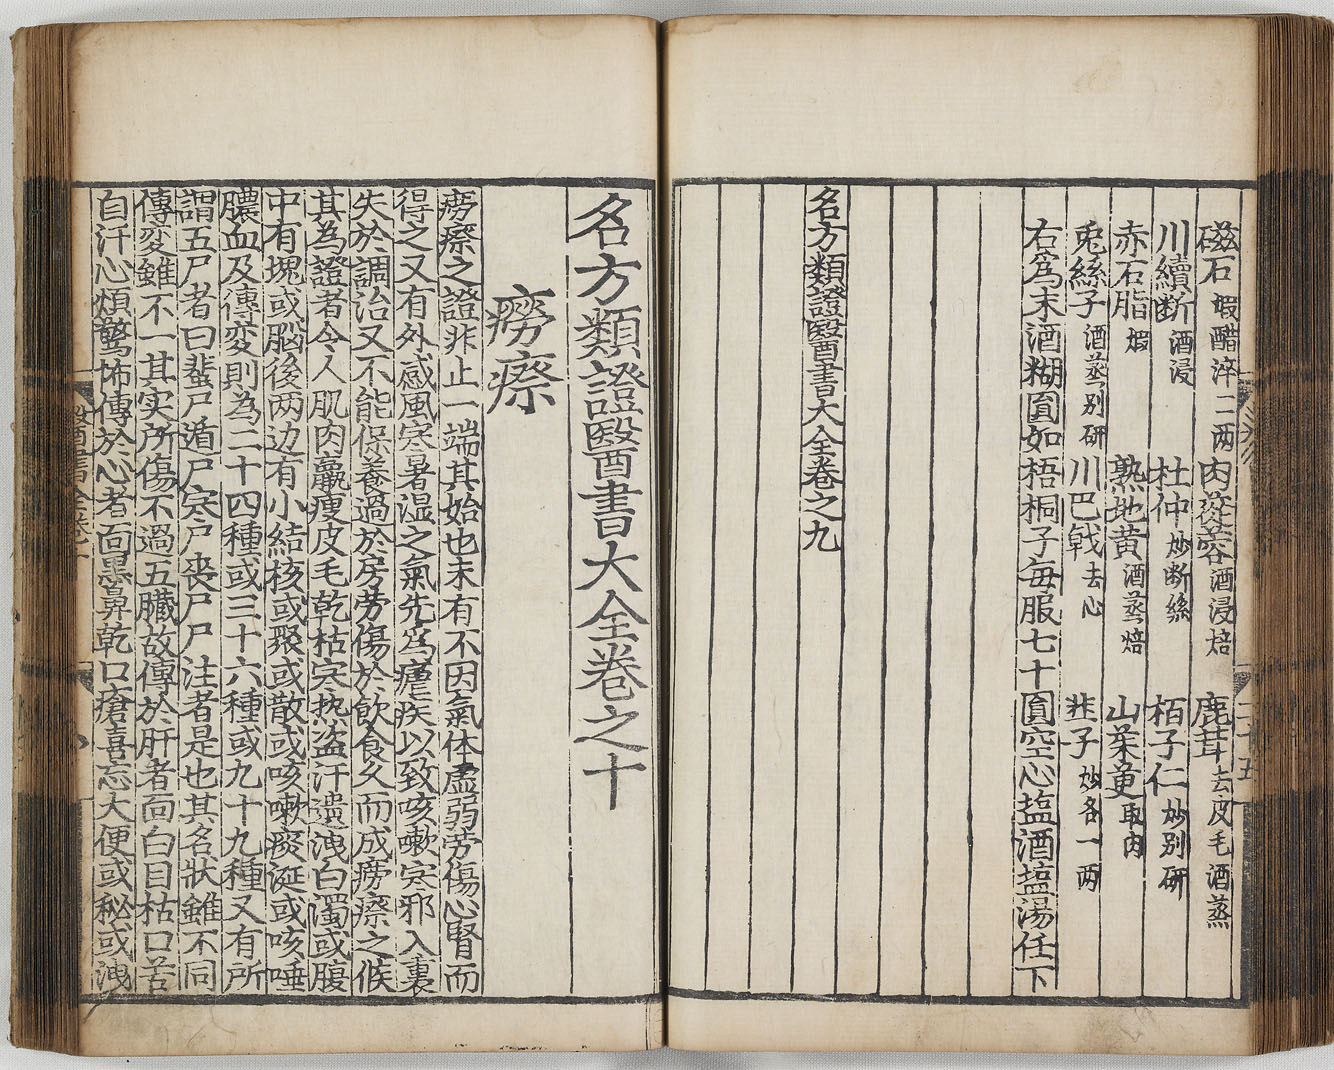 磁石 煅醋淬二两 肉蓯蓉 酒浸焙 鹿茸 去皮毛酒蒸
川續断 酒浸 杜仲 炒断絲 栢子仁 炒別研
赤石脂 煅 熟地黄 酒蒸焙 山茱萸 取肉
兎絲子 酒蒸別研 川巴戟 去心 韭子 炒各一两
右爲末酒糊圎如梧桐子每服七十圎空心塩酒塩湯任下
名方類證醫書大全卷之九
名方類證醫書大全卷之十
癆瘵
癆瘵之證非止一端其始也未有不因氣体虚弱劳傷心腎而
得之又有外感風寒暑湿之氣先爲瘧疾以致咳嗽寒邪入裏
失於調治又不能保養過於房劳傷於飲食久而成癆瘵之候
其為證者令人肌肉羸瘦皮毛乾枯寒热盗汗遗洩白濁或腹
中有塊或脳後两边有小結核或聚或散或咳嗽痰涎或咳唾
膿血及傳変則為二十四種或三十六種或九十九種又有所
謂五尸者曰蜚尸遁尸寒尸喪尸尸注者是也其名狀雖不同
傳変雖不一其实所傷不過五臓故傳於肝者面白目枯口苦
自汗心煩驚怖傳於心者面黒鼻乾口瘡喜忘大便或秘或洩